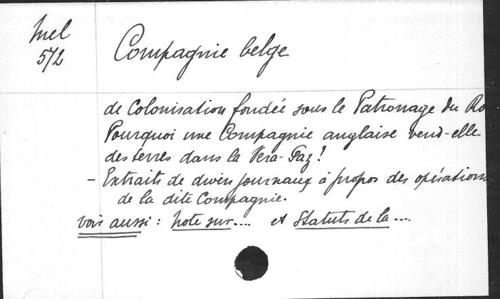 Mel
572
Compagnie belge
de Colonisation fondée sous le Patronage du Ro
Pourquoi une Compagnie anglaise vend-elle
des terres dans la Vera-Paz?
- Extraits de divers journaux à propos des opérations
de la dite Compagnie.
voir aussi: Note sur.... et Statuts de la....